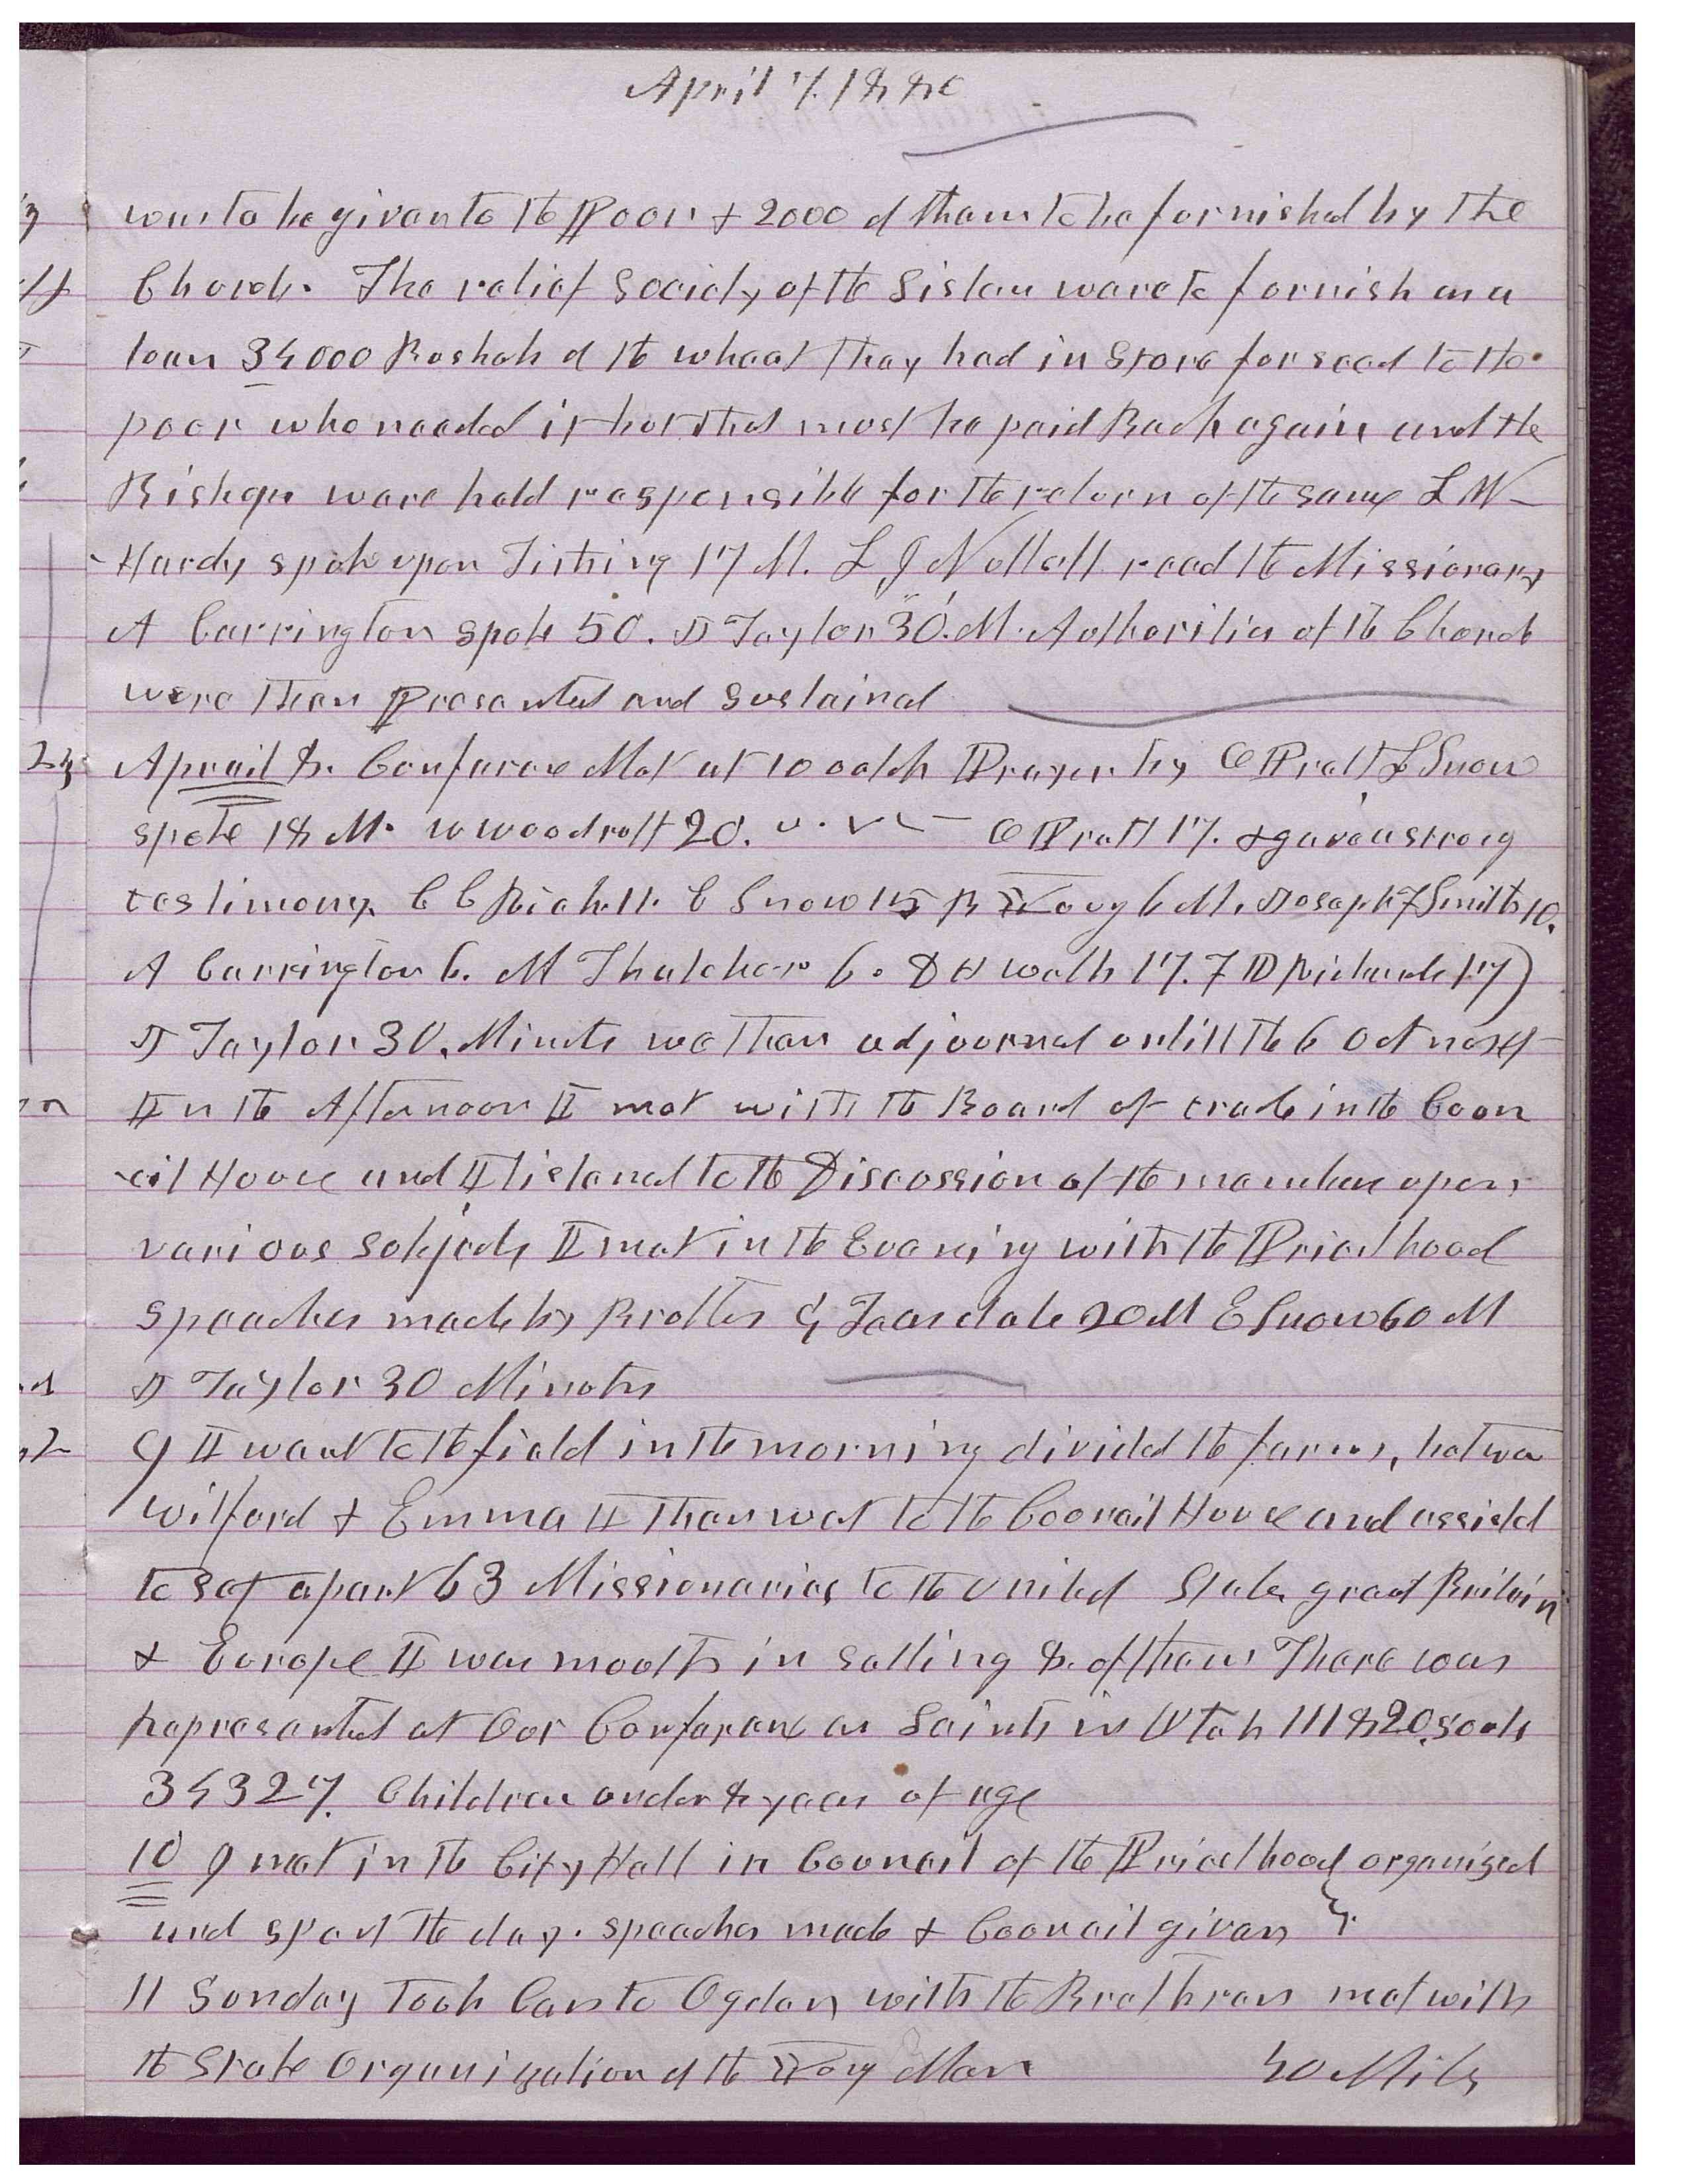 April 7. 1880
was to be given to the Poor & 2000 of them to be furnished by the
Church. The relief Society of the Sisters were to furnish as a
loan 34000 Bushels of the wheat they had in Store for seed to the
poor who needed it but that must be paid Back again and the
Bishops ware held responsible for the return of the same L W
Hardy spoke upon Tithing 17 M. L J Nuttall read the Missionary
A Carrington spoke 50. J Taylor 30. M. Authorities of the Church
were then Presented and Sustained
Aprail 8. Conferene Met at 10 oclok Prayer by O Pratt L Snow
spoke 18 M. W Woodruff 20. O Pratt 17. & gave a strong
testimony. C C Rich 11. E Snow 15 B Young 6 M. Joseph F Smith 10.
A Carrington 6. M Thatcher 6. D H Wells 17. F D Richards 17)
J Taylor 30. Minute we then adjourned untill the 6 Oct next
In the Afternoon I met with the Board of trade in the Coun
cil House and I listened to the Discussion of the members upon
various Subjects I met in the Evening with the Priesthood
Speeches made by Brother G Teasdale 20 M E Snow 60 M
J Taylor 30 Minutes
9 I went to the field in the morning divided the farms, betwee
Wilford & Emma I then wet to the Councail House and assisted
to set apart 63 Missionaries to the United State great Britain
& Europe I was mouth in setting 8. of them There was
Represented at Our Conferane as Saints in Utah 111820. souls
34327. Children under 8 years of age
10 I met in the City Hall in Council of the Priesthood organized
and spent the day. speeches made & Councail given
11 Sunday Took Cars to Ogden with the Brethren met with
the Stake Organization of the Young Men 40 Miles